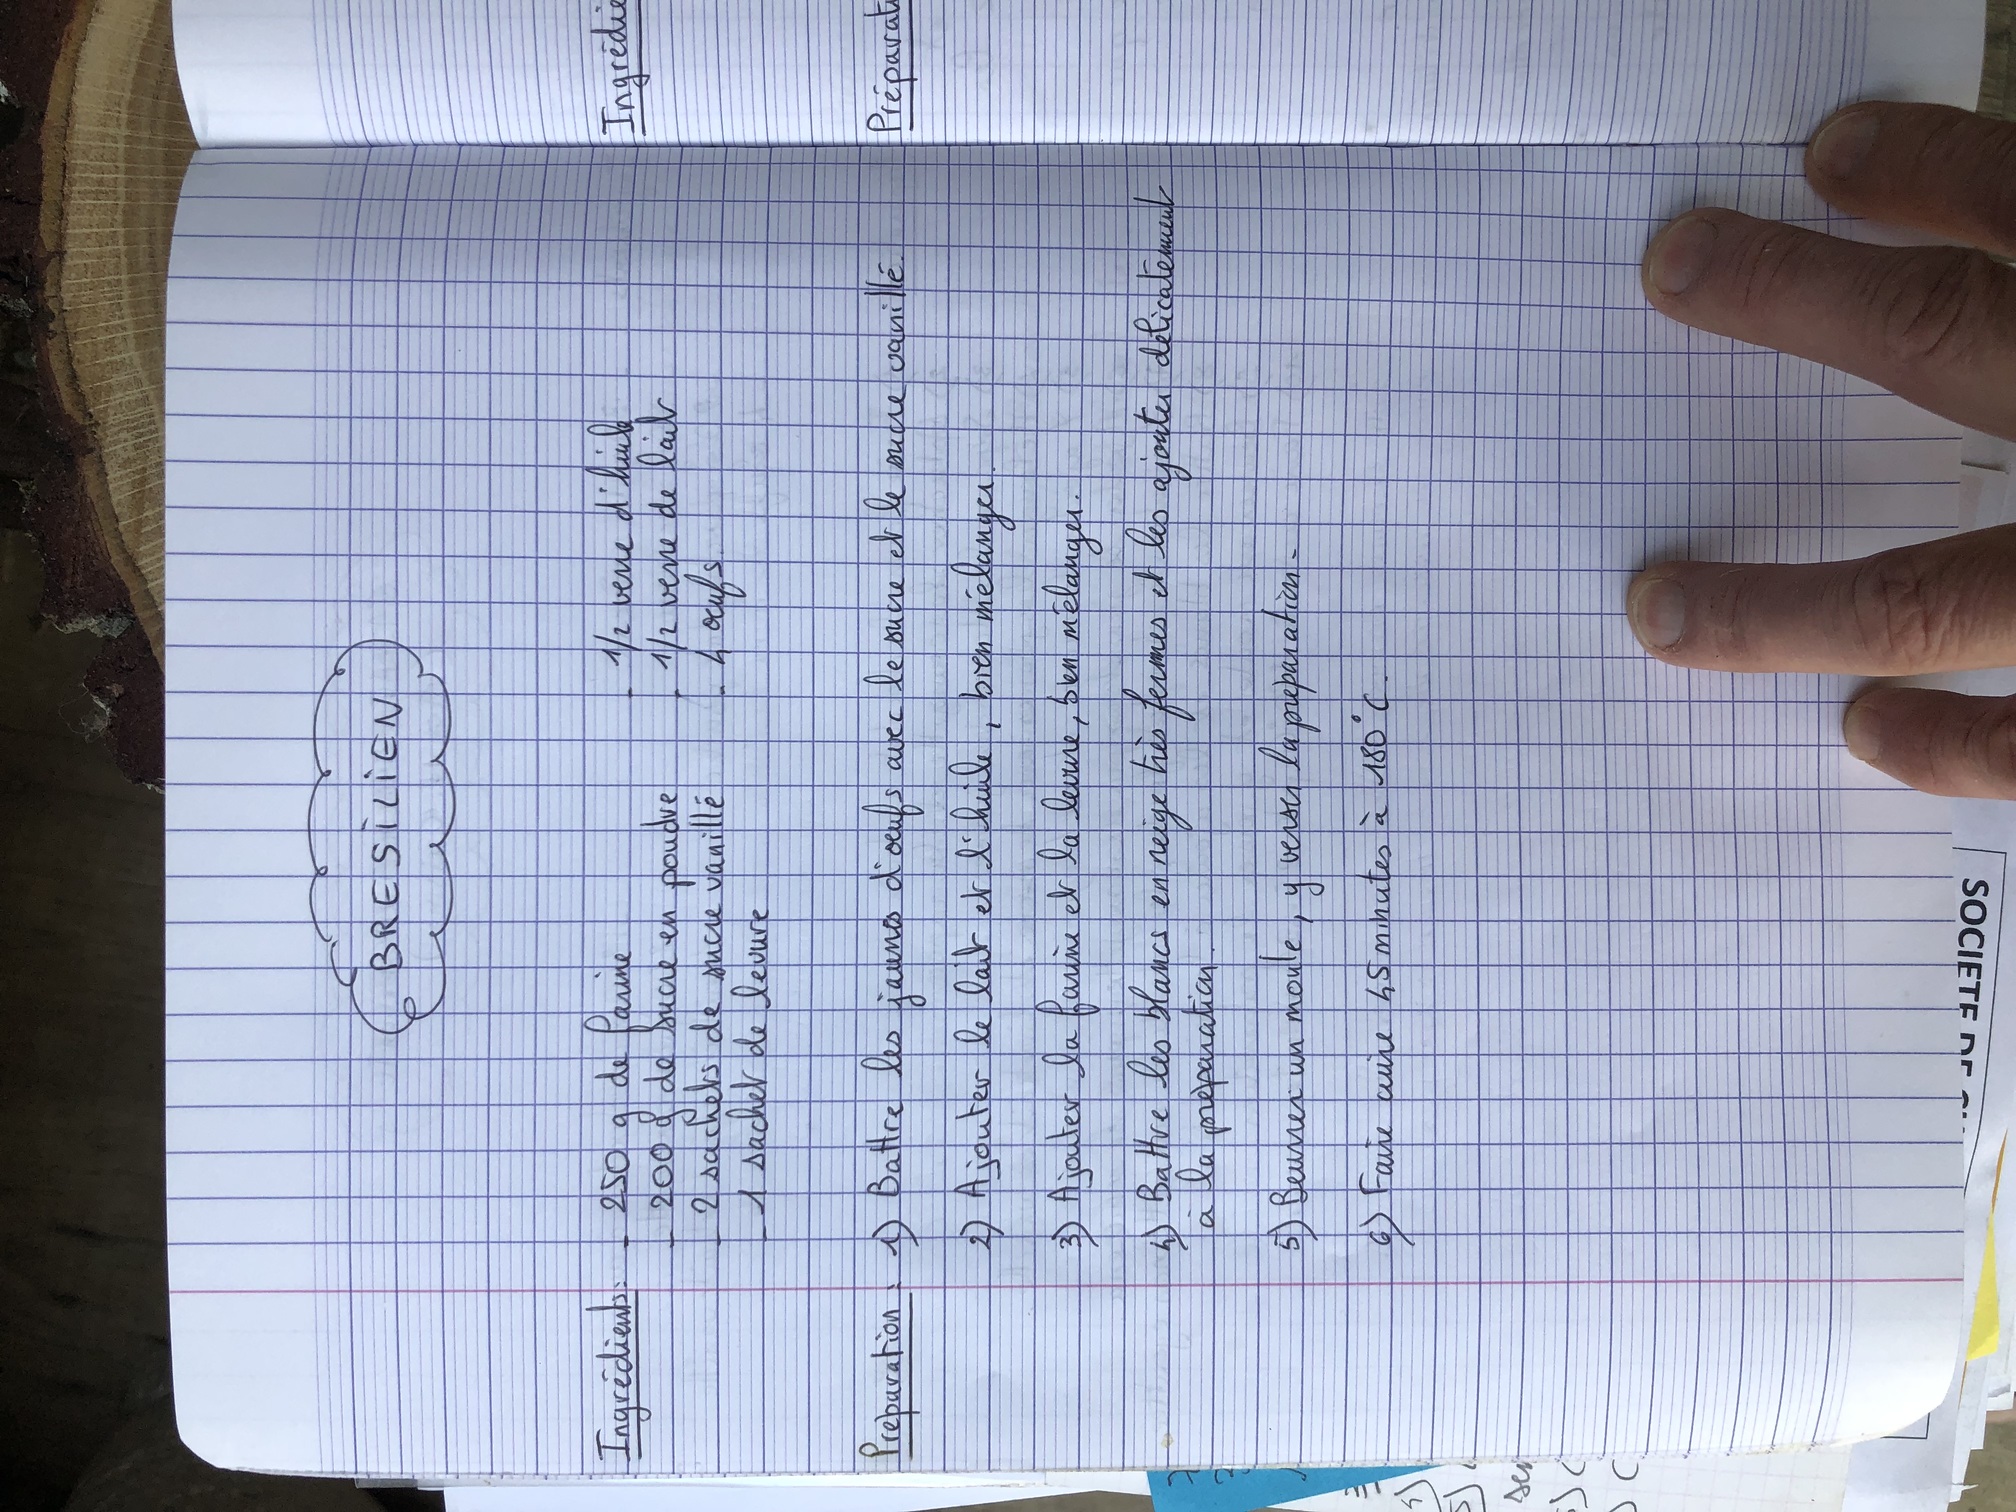 BRESILIEN
Ingrédients: - 250 g de farine - 1/2 verre d'huile
- 200 g de sucre en poudre - 1/2 verre de lait
- 2 sachets de sucre vanillé - 4 oeufs.
- 1 sachet de levure
Préparation: 1) Battre les jaunes d'oeufs avec le sucre et le sucre vanillé.
2) Ajouter le lait et l'huile, bien mélanger.
3) Ajouter la farine et la levure, bien mélanger.
4) Battre les blancs en neige très fermes et les ajouter délicatement
à la préparation.
5) Beurrer un moule, y verser la préparation.
6) Faire cuire 45 minutes à 180°C.
Ingrédie
Préparat
SOCIETE DE